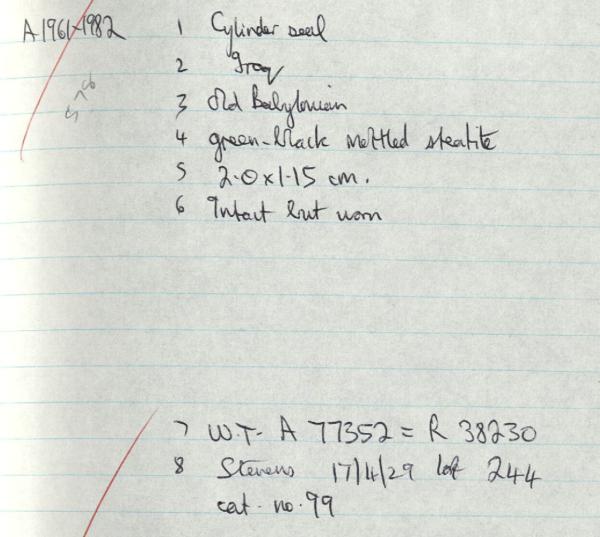 A1961-1982 1 Cylinder seal
2 Iraq
3 Old Babylonian
4 green-black mottled steatite
5 2.0 x 1.15 cm.
6 Intact but worn
7 W.T- A 77352 = R 38230
8 Stevens 17/4/29 lot 244
cat. no. 99